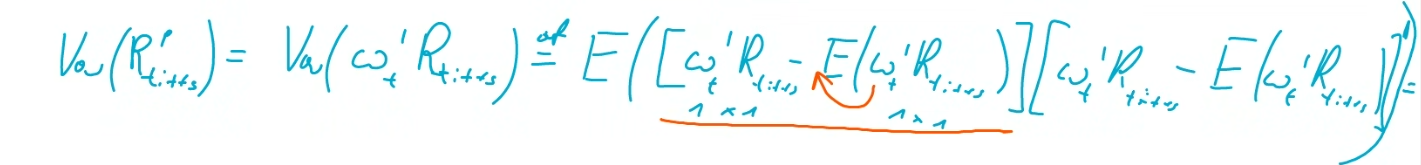 Var(R^p_{t:t+s}) = Var(ω_t' R_{t:t+s}) \overset{def}{=} E([ω_t' R_{t:t+s} - E(ω_t' R_{t:t+s})][ω_t' R_{t:t+s} - E(ω_t' R_{t:t+s})]') =
1×1 1×1